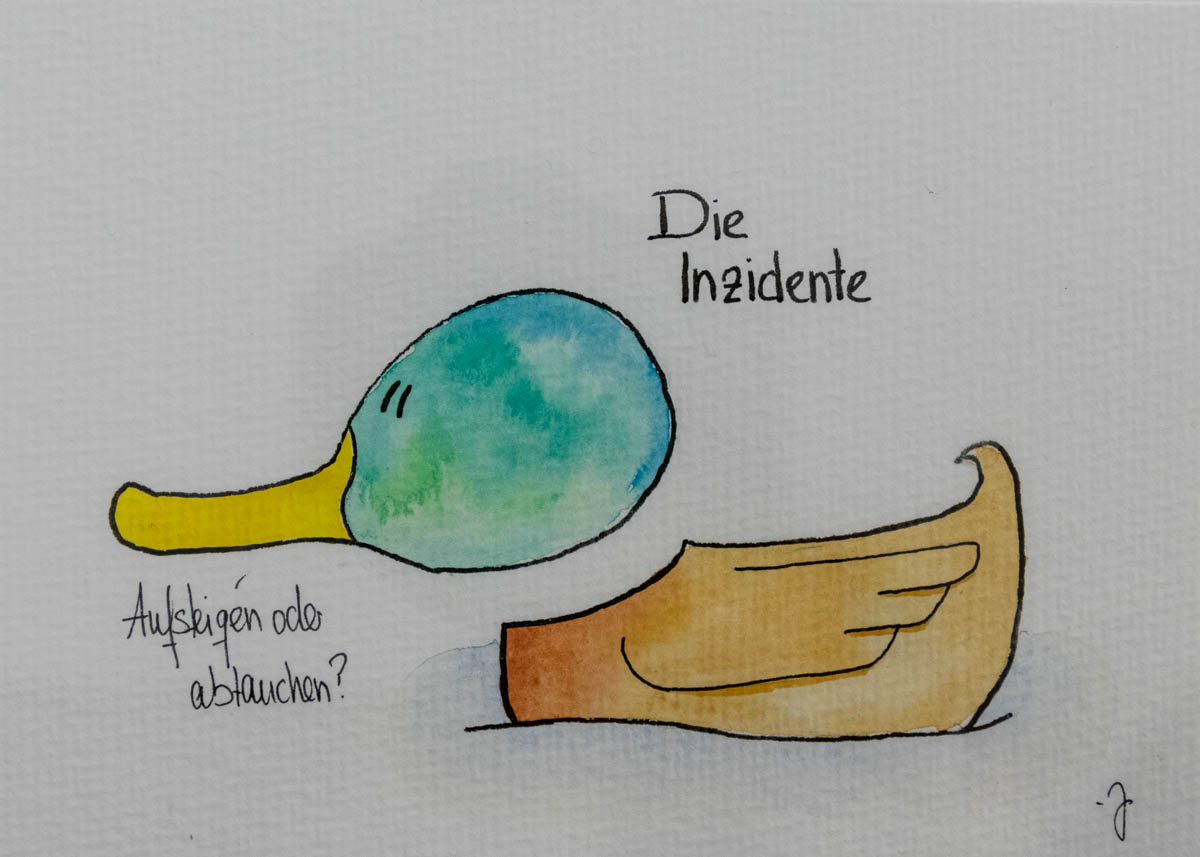 Die
Inzidente
Aufsteigen oder
abtauchen?
-J